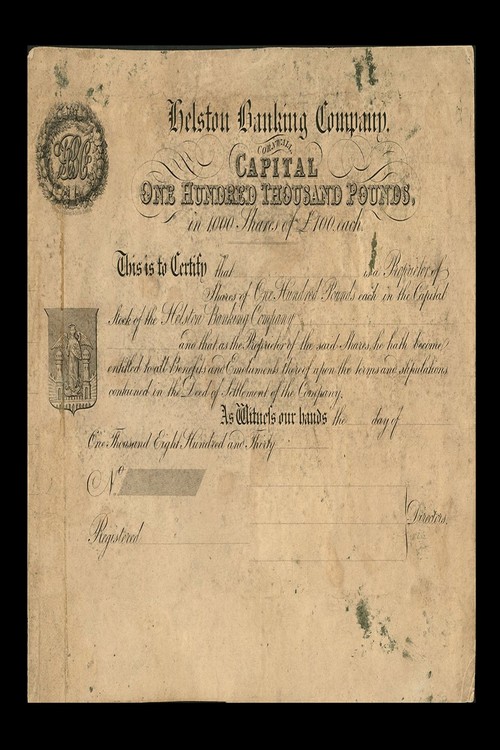 HBC
Helston Banking Company.
CORNWALL
CAPITAL
ONE HUNDRED THOUSAND POUNDS,
in 1000 Shares of £100 each
This is to Certify that is a Proprietor of
Shares of One Hundred Pounds each in the Capital
Stock of the Helston Banking Company
and that as the Proprietor of the said Shares, he hath become
entitled to all Benefits and Emoluments thereof upon the terms and stipulations
contained in the Deed of Settlement of the Company.
As Witness our hands the day of
One Thousand Eight Hundred and Thirty
No.
Directors.
Registered